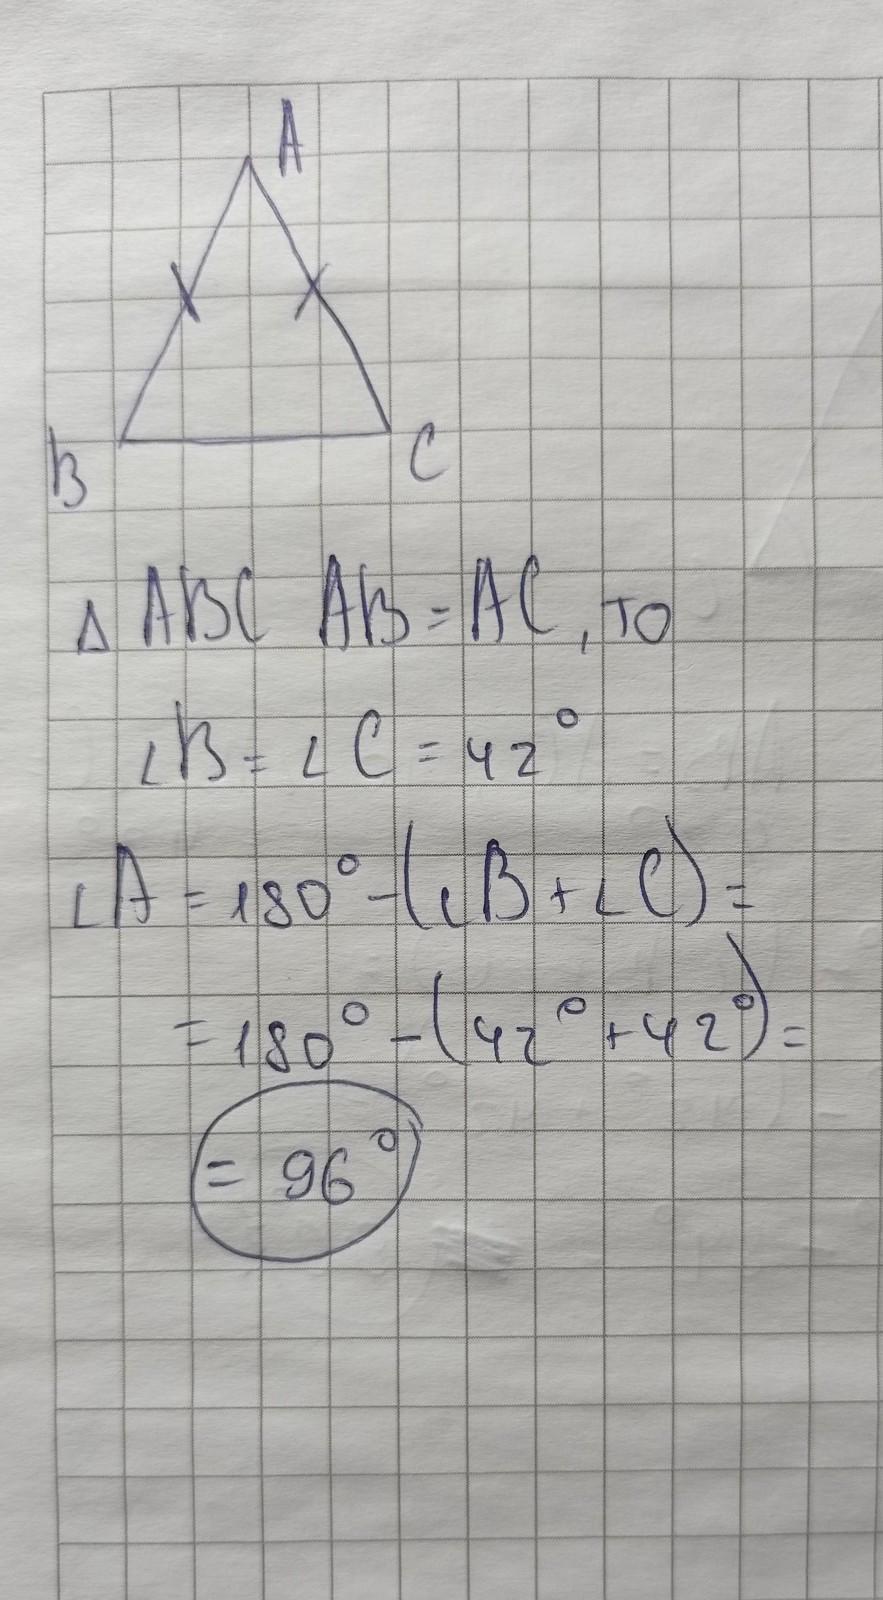 A
B
C
Δ ABC AB = AC, то
∠B = ∠C = 42°
∠A = 180° - (∠B + ∠C) =
= 180° - (42° + 42°) =
= 96°